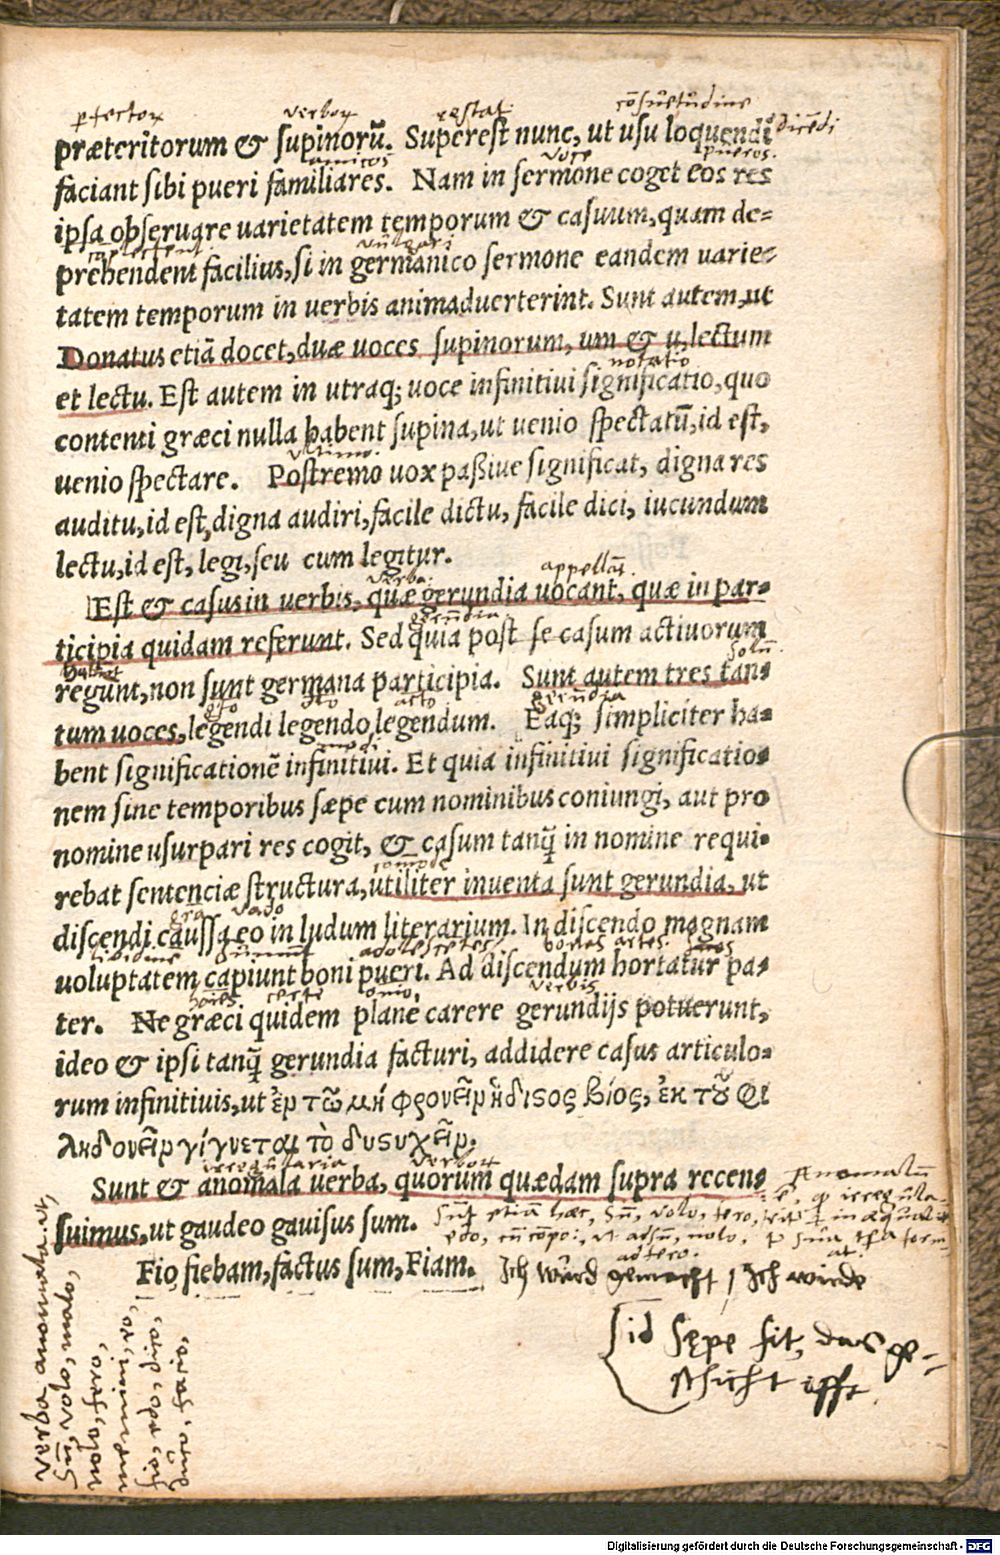 perfectorum verborum restat consuetudine
præteritorum & supinorū. Superest nunc, ut usu loquendi dicendi
amicos voce pueros.
faciant sibi pueri familiares. Nam in sermone coget eos res
ipsa obseruare varietatem temporum & casuum, quam de-
vulgari
prehendent facilius, si in germanico sermone eandem varie-
tatem temporum in verbis animaduerterint. Sunt autem, ut
Donatus etiā docet, duæ voces supinorum, um & u, lectum
notatio
et lectu. Est autem in utraq; voce infinitiui significatio, quo
contenti græci nulla habent supina, ut venio spectatū, id est,
ultimo.
venio spectare. Postremo vox paßiue significat, digna res
auditu, id est, digna audiri, facile dictu, facile dici, iucundum
lectu, id est, legi, seu cum legitur.
verba. appellāt.
Est & casus in verbis, quæ gerundia vocant, quæ in par-
gerūdia
ticipia quidam referunt. Sed quia post se casum actiuorum
habent solū.
regunt, non sunt germana participia. Sunt autem tres tan-
gerūdia
tum voces, legendi legendo legendum. Eaq; simpliciter ha-
modi
bent significationē infinitiui. Et quia infinitiui significatio-
nem sine temporibus sæpe cum nominibus coniungi, aut pro
nomine usurpari res cogit, & casum tanq̄ in nomine requi-
comode
rebat sentenciæ structura, utiliter inventa sunt gerundia, ut
gra vado
discendi caussa eo in ludum literarium. In discendo magnam
libidine sumunt adolescētes bonas artes.
voluptatem capiunt boni pueri. Ad discendum hortatur pa-
certe verbis
ter. Ne græci quidem plane carere gerundijs potuerunt,
ideo & ipsi tanq̄ gerundia facturi, addidere casus articulo-
rum infinitiuis, ut ἐν τῶ μὴ φρονεῖν ἥδιϛος βίος, ἐκ τοῦ φι
ληδονεῖν γίγνεται τὸ δυϛυχεῖν.
irregularia verborum
Sunt & anomala verba, quorum quædam supra recen-
suimus, ut gaudeo gavisus sum.
Sunt etiā hæc, Sū, volo, fero,
edo, nolo,
Fio fiebam, factus sum, Fiam. Ich würd gemacht / Ich wirde
id sępe fit, das ge-
schicht offt.
verba anomala. ut,
Sū, volo, malo,
nolo, fero,
memini,
fio, edo,